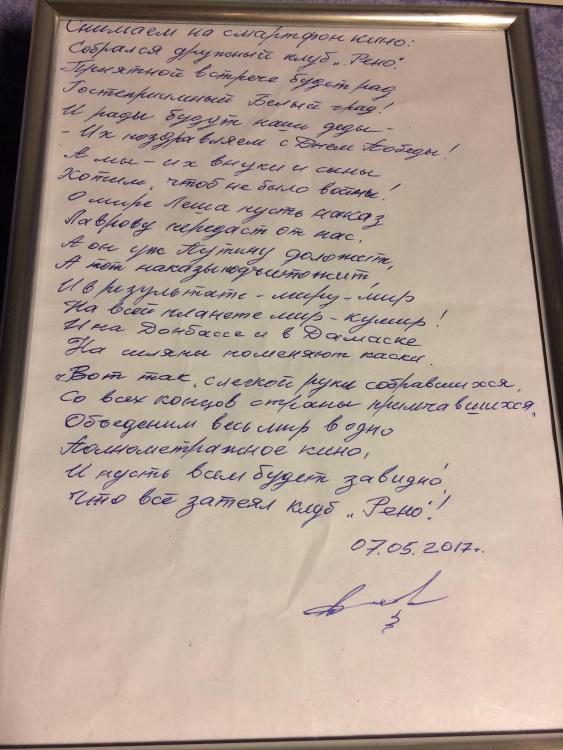 Снимаем на смартфон кино:
Собрался дружный клуб „Рено".
Приятной встрече будет рад
Гостеприимный Белый град!
И рады будут наши деды –
- Их поздравляем с Днем Победы!
А мы – их внуки и сыны
Хотим, чтоб не было войны!
О мире Леша пусть наказ
Лаврову передаст от нас.
А он уж Путину доложит,
А тот наказы подытожит,
И в результате – миру – мир
На всей планете мир – кумир!
И на Донбассе и в Дамаске
На шляпы поменяют каски.
Вот так, с легкой руки собравшихся,
Со всех концов страны примчавшихся,
Объеденим весь мир в одно
Полнометражное кино,
И пусть всем будет завидно,
Что всё затеял клуб „Рено"!
07.05.2017г.